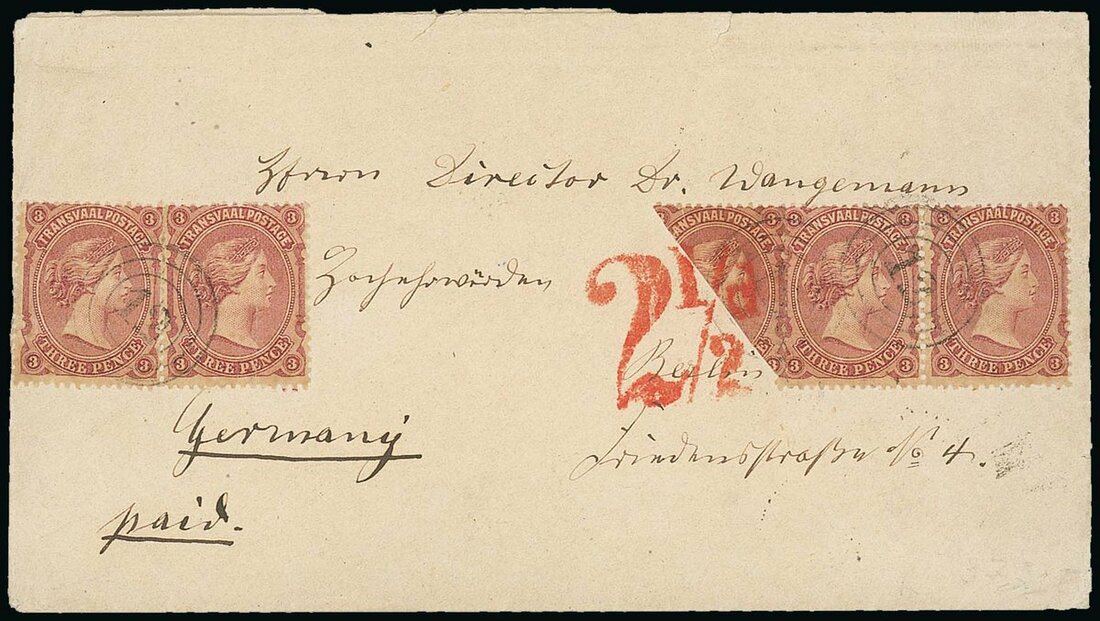 Herrn Director Dr. Wangemann
3 TRANSVAAL POSTAGE 3
3 THREE PENCE 3
3 TRANSVAAL POSTAGE 3
3 THREE PENCE 3
Hochehrwürden
2 1/2 d
TRANSVAAL POSTAGE 3
3 TRANSVAAL POSTAGE 3
3 THREE PENCE 3
3 TRANSVAAL POSTAGE 3
3 THREE PENCE 3
Berlin
Germany
Friedensstraße No 4.
paid.